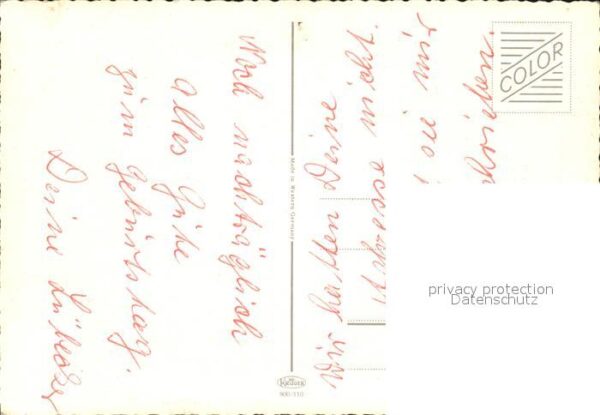 Noch nachträglich
alles Gute
zum Geburtstag.
Deine Lübecker
Wir hatten Deine
Adresse nicht.
sie mir
COLOR
Made in Western Germany
Krüger
900/110
privacy protection
Datenschutz